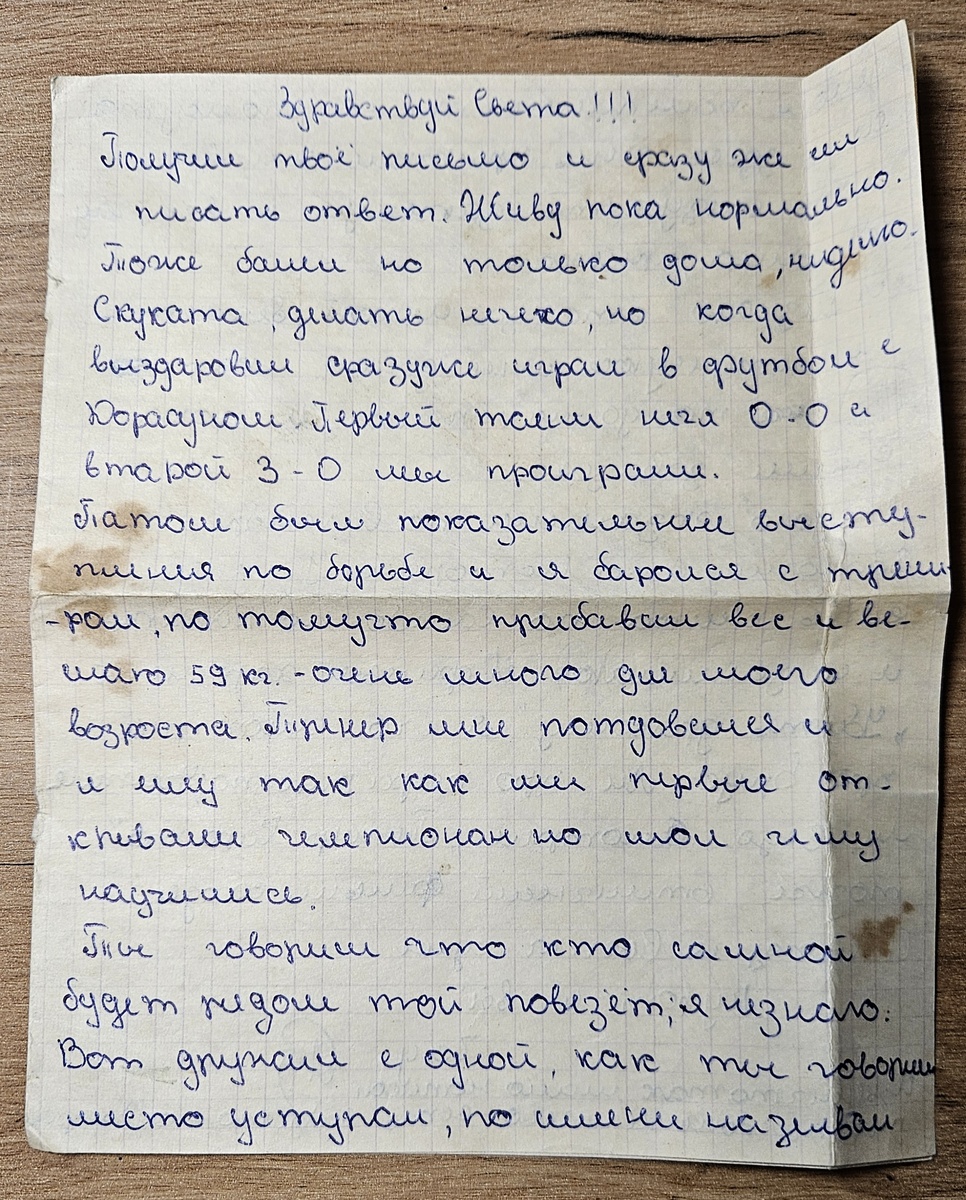 Здравствуй Света!!!
Получил твоё письмо и сразу же сил
писать ответ. Живу пока нормально.
Тоже балел но только дома, ниделю.
Скуката, делать нечехо, но когда
выздаровил сразуже играл в футбол с
Первый тайм 0-0 а
втарой 3-0 мы проиграли.
Патом были показательные высту-
пления по борьбе и я баролся с трени-
-ром, по томучто прибавил вес и ве-
шаю 59 кг. - очень много для моего
возроста. Тринер мне потдовался и
я ему так как мы первые от-
кривали чемпионан но мол чиму
научились.
Ты говориш что кто самной
будет рядом той повезёт; я незнаю.
Вот дружил с одной, как ты говориш
место уступал, по имени называл